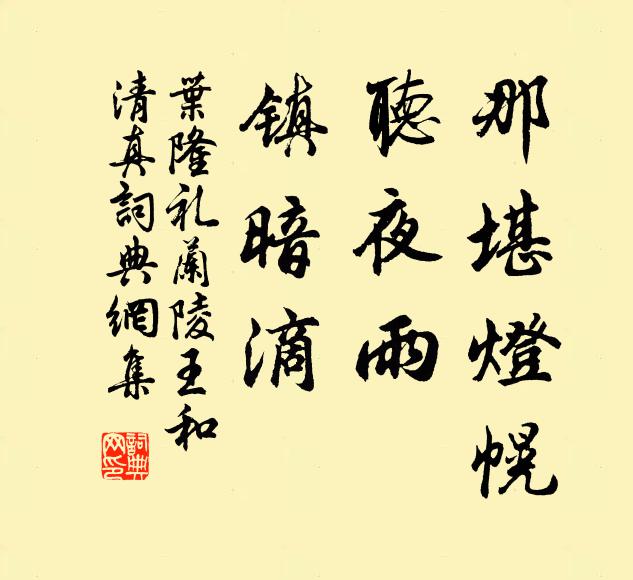 那堪燈幌
聽夜雨
镇暗滴
葉隆礼蘭陵王和
清真詞典網集
詞典网印